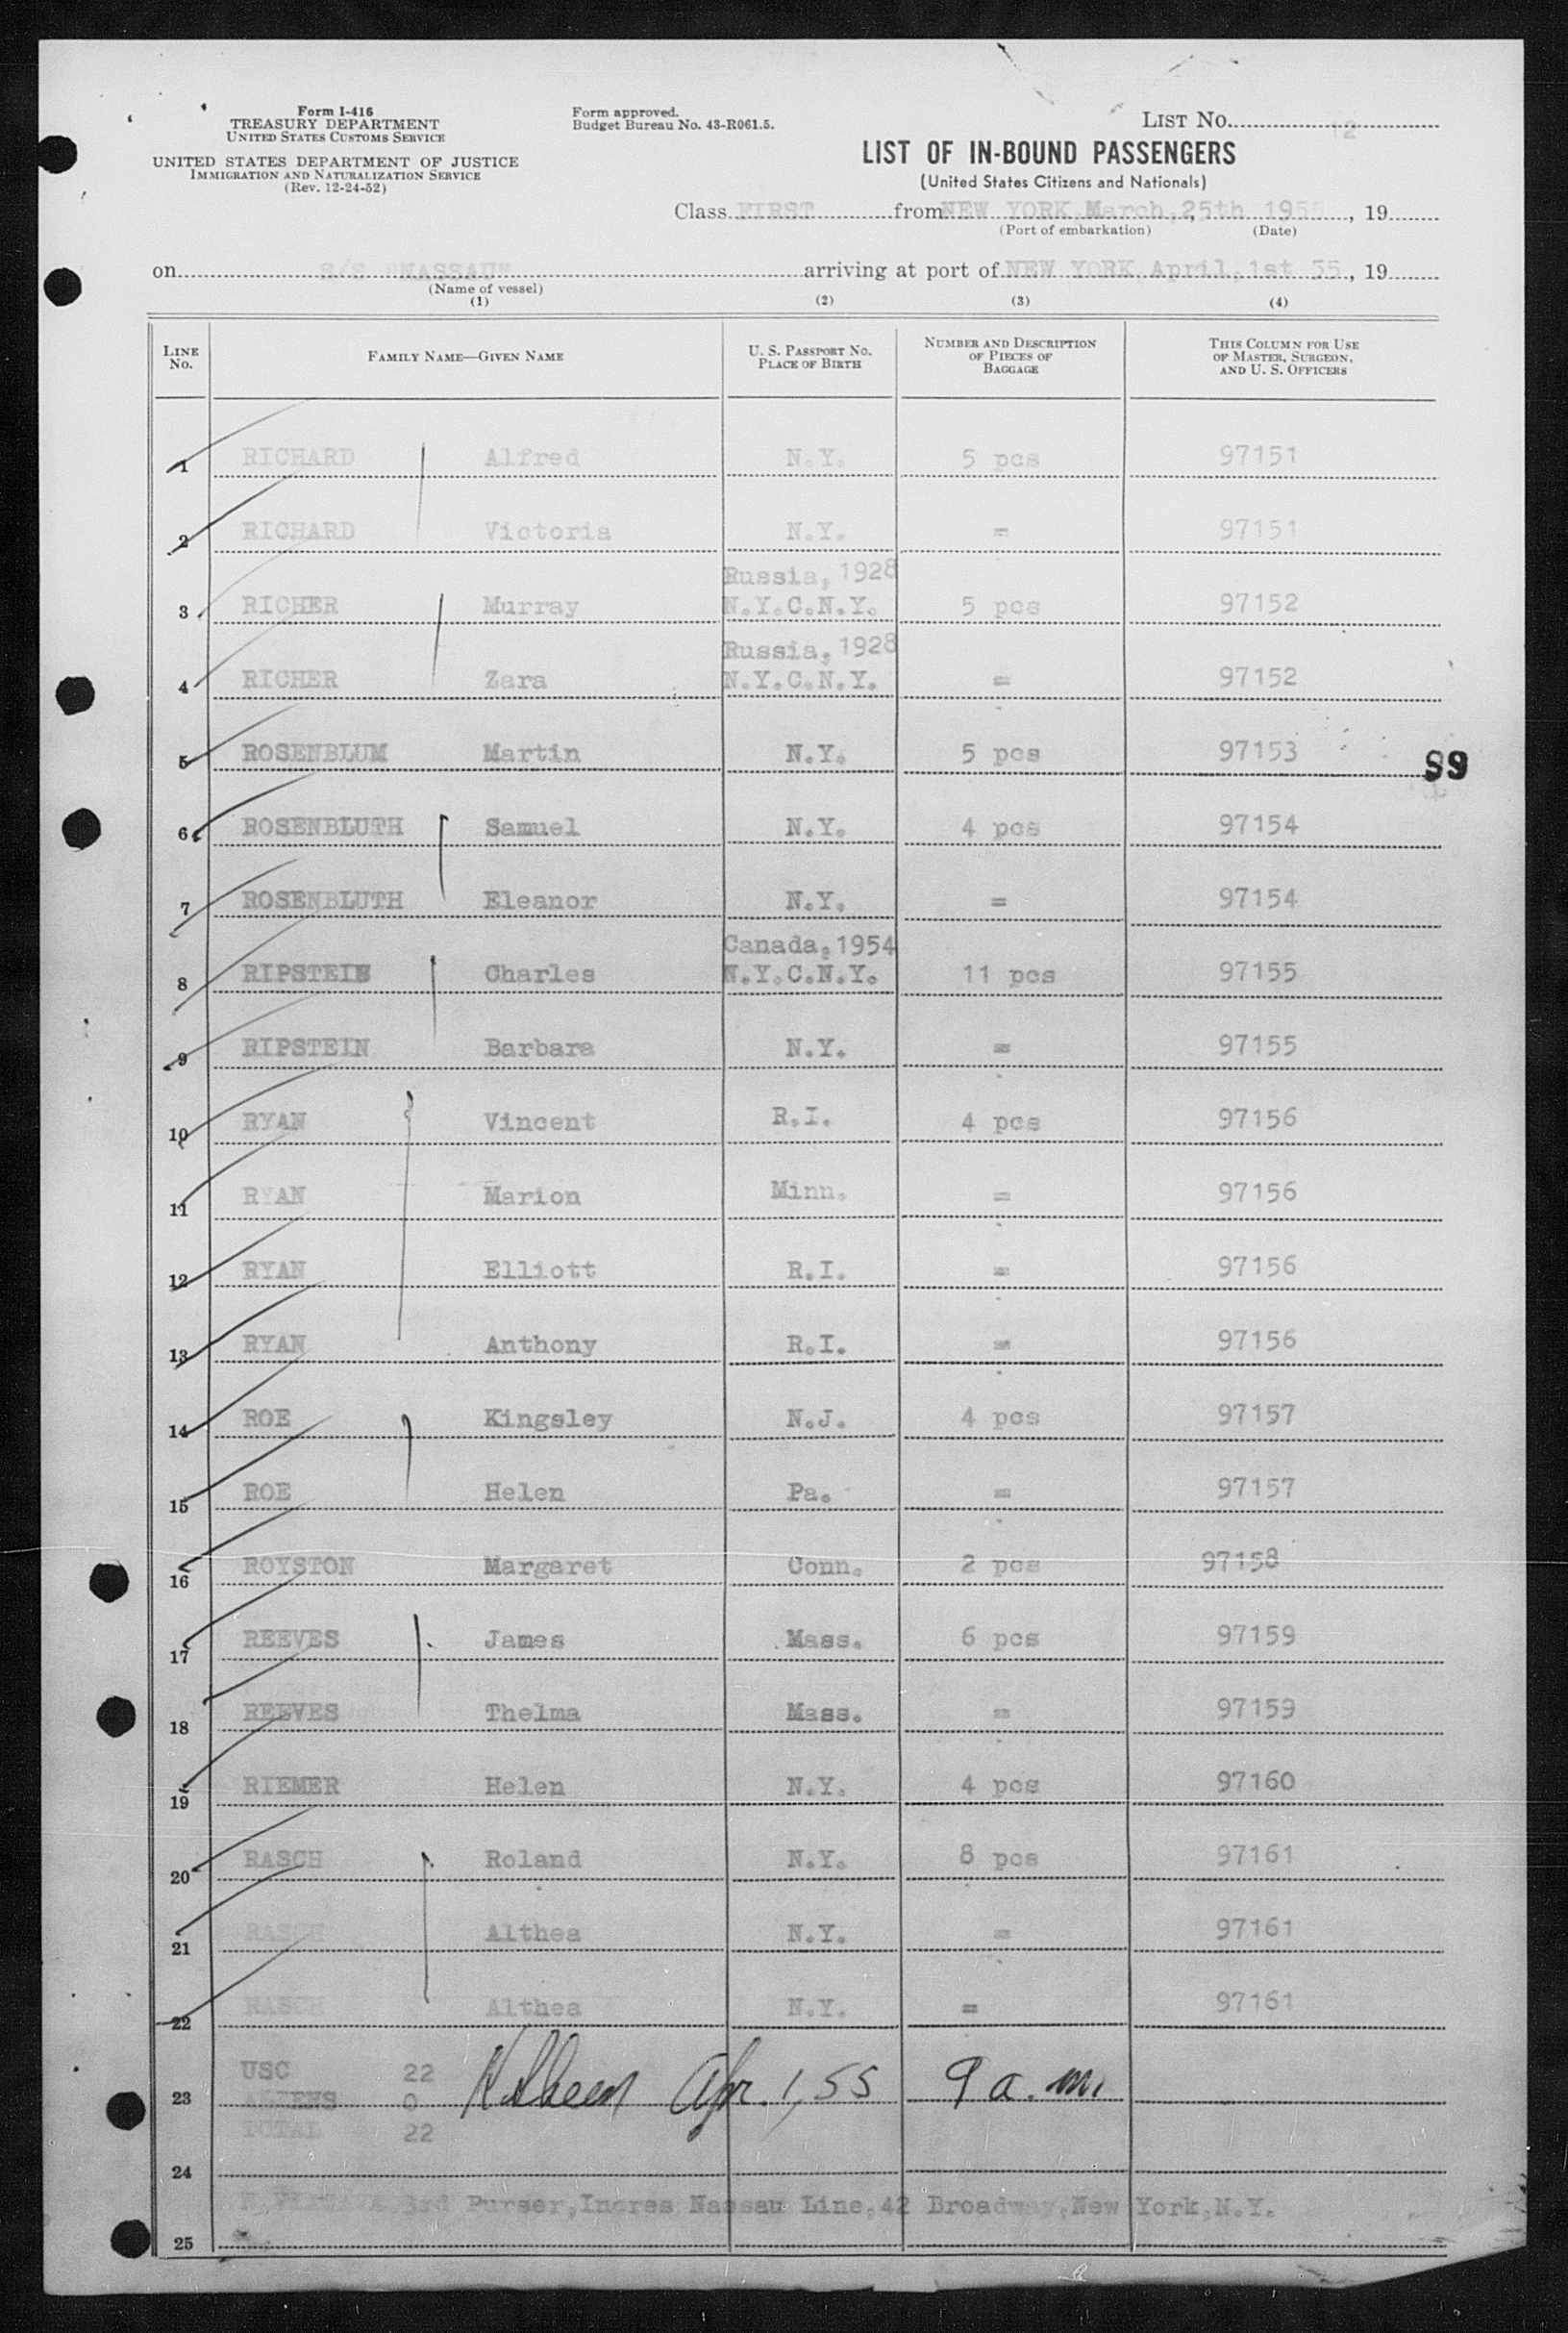 Form I-416
TREASURY DEPARTMENT
UNITED STATES CUSTOMS SERVICE
UNITED STATES DEPARTMENT OF JUSTICE
IMMIGRATION AND NATURALIZATION SERVICE
(Rev. 12-24-52)
Form approved.
Budget Bureau No. 43-R061.5.
LIST No. 12
LIST OF IN-BOUND PASSENGERS
(United States Citizens and Nationals)
Class FIRST from NEW YORK, March, 25th 1955, 19
(Port of embarkation) (Date)
on S/S "NASSAU" arriving at port of NEW YORK, April, 1st 55, 19
(Name of vessel)
(1) (2) (3) (4)
LINE No. FAMILY NAME—GIVEN NAME U. S. PASSPORT NO. PLACE OF BIRTH NUMBER AND DESCRIPTION OF PIECES OF BAGGAGE THIS COLUMN FOR USE OF MASTER, SURGEON, AND U. S. OFFICERS
1 RICHARD Alfred N.Y. 5 pcs 97151
2 RICHARD Victoria N.Y. = 97151
Russia, 1928
3 RICHER Murray N.Y.C.N.Y. 5 pcs 97152
Russia, 1928
4 RICHER Zara N.Y.C.N.Y. = 97152
5 ROSENBLUM Martin N.Y. 5 pcs 97153
89
6 ROSENBLUTH Samuel N.Y. 4 pcs 97154
7 ROSENBLUTH Eleanor N.Y. = 97154
Canada, 1954
8 RIPSTEIN Charles N.Y.C.N.Y. 11 pcs 97155
9 RIPSTEIN Barbara N.Y. = 97155
10 RYAN Vincent R.I. 4 pcs 97156
11 RYAN Marion Minn. = 97156
12 RYAN Elliott R.I. = 97156
13 RYAN Anthony R.I. = 97156
14 ROE Kingsley N.J. 4 pcs 97157
15 ROE Helen Pa. = 97157
16 ROYSTON Margaret Conn. 2 pcs 97158
17 REEVES James Mass. 6 pcs 97159
18 REEVES Thelma Mass. = 97159
19 RIEMER Helen N.Y. 4 pcs 97160
20 RASCH Roland N.Y. 8 pcs 97161
21 RASCH Althea N.Y. = 97161
22 RASCH Althea N.Y. = 97161
USC 22
23 ALIENS 0 Apr. 1, 55 9 a.m.
TOTAL 22
24
3rd Purser, Incres Nassau Line, 42 Broadway, New York, N.Y.
25